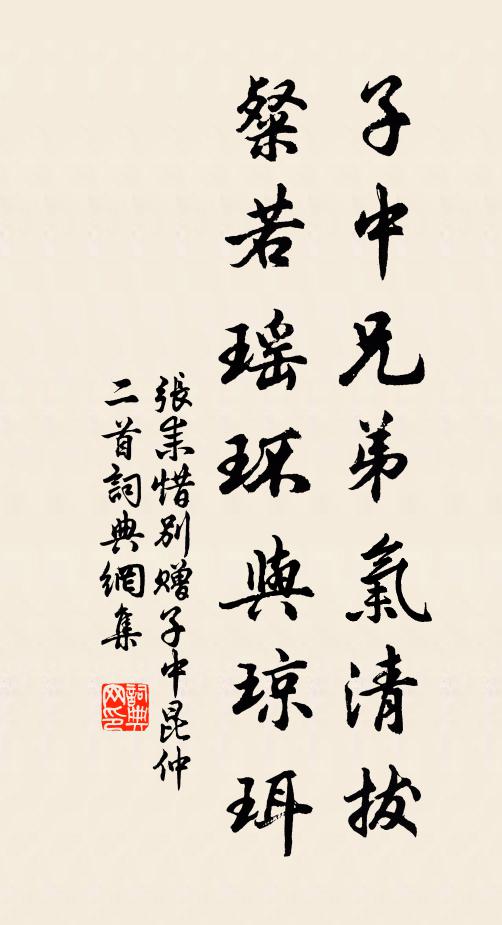 子中兄弟氣清拔
粲若瑶环與琼珥
張耒惜别贈子中昆仲
二首詞典網集
詞典網印